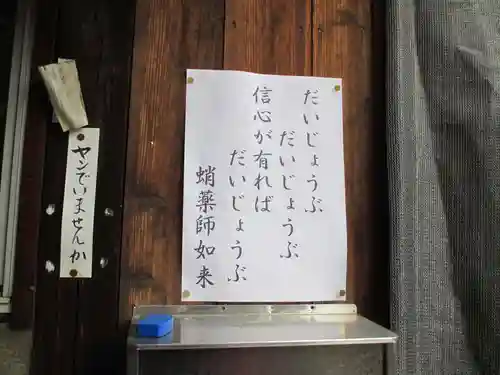 だいじょうぶ
だいじょうぶ
信心が有れば
だいじょうぶ
蛸薬師如来
ヤンでいませんか